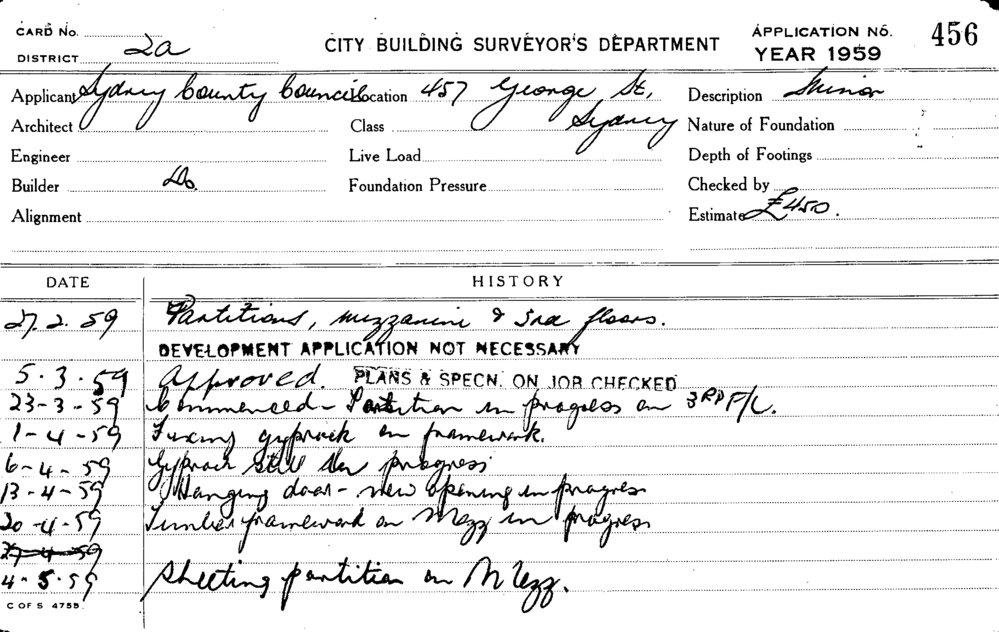 CARD No.
DISTRICT 2a
CITY BUILDING SURVEYOR'S DEPARTMENT
APPLICATION No. 456
YEAR 1959
Applicant Sydney County Council Location 457 George St, Sydney Description Minor
Architect Class Nature of Foundation
Engineer Live Load Depth of Footings
Builder Do. Foundation Pressure Checked by
Alignment Estimate £450.
DATE HISTORY
27.2.59 Partitions, mezzanine & 3rd floors.
DEVELOPMENT APPLICATION NOT NECESSARY
5.3.59 Approved. PLANS & SPECN. ON JOB CHECKED
23-3-59 Commenced - Partition in progress on 3RD F/L.
1-4-59 Fixing gyprock on framework.
6-4-59 Gyprock still in progress
13-4-59 Hanging door - new opening in progress
20-4-59 Timber framework on Mezz in progress
27-4-59
4-5-59 Sheeting partition on Mezz.
C OF S 4755